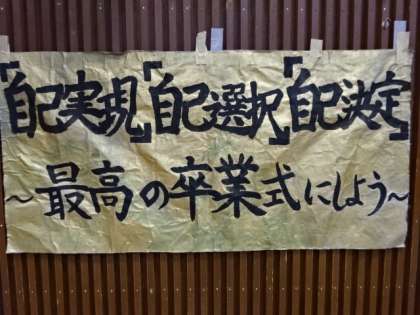 「自己実現」「自己選択」「自己決定」
~最高の卒業式にしよう~